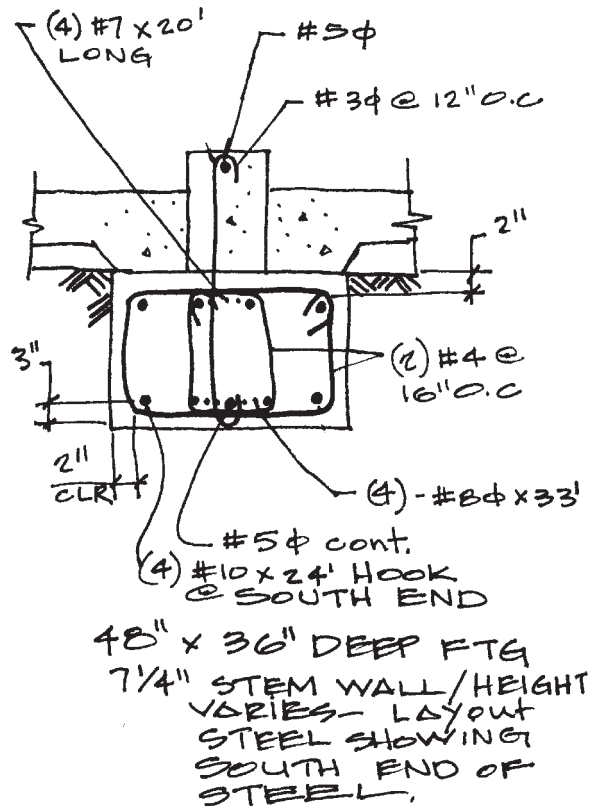 (4) #7 x 20'
LONG
#5ϕ
#3ϕ @ 12" O.C
2"
(2) #4 @
16" O.C
3"
2"
CLR
(4) - #8ϕ x 33'
#5ϕ cont.
(4) #10 x 24' HOOK
@ SOUTH END
48" x 36" DEEP FTG
7 1/4" STEM WALL/HEIGHT
VARIES - LAYOUT
STEEL SHOWING
SOUTH END OF
STEEL.